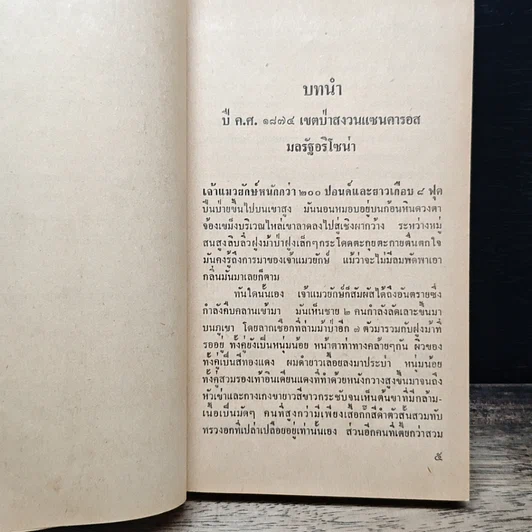 บทนำ
ปี ค.ศ. ๑๘๗๔ เขตป่าสงวนแซนคารอส
มลรัฐอริโซน่า
เจ้าแมวยักษ์หนักกว่า ๒๐๐ ปอนด์และยาวเกือบ ๘ ฟุต
ปีนป่ายขึ้นไปบนเขาสูง มันนอนหมอบอยู่บนก้อนหินดวงตา
จ้องเขม็งบริเวณไหล่เขาลาดลงไปสู่เชิงผากว้าง ระหว่างหมู่
สนสูงลิบลิ่วฝูงม้าป่าฝูงเล็กๆกระโดดตะกุยตะกายตื่นตกใจ
มันคงรู้ถึงการมาของเจ้าแมวยักษ์ แม้ว่าจะไม่มีลมพัดพาเอา
กลิ่นมันมาเลยก็ตาม
ทันใดนั้นเอง เจ้าแมวยักษ์ก็สัมผัสได้ถึงอันตรายซึ่ง
กำลังคืบคลานเข้ามา มันเห็นชาย ๒ คนกำลังลัดเลาะขึ้นมา
บนภูเขา โดยลากเชือกที่ล่ามม้าป่าอีก ๗ ตัวมารวมกับฝูงม้าที่
รออยู่ ทั้งคู่ยังเป็นหนุ่มน้อย หน้าตาท่าทางคล้ายๆกัน ผิวของ
ทั้งคู่เป็นสีทองแดง ผมดำยาวเลื้อยลงมาประบ่า หนุ่มน้อย
ทั้งคู่สวมรองเท้าอินเดียนแดงที่ทำด้วยหนังกวางสูงขึ้นมาจนถึง
หัวเข่าและกางเกงขายาวสีขาวกระชับจนเห็นต้นขาที่มีกล้าม-
เนื้อเป็นมัดๆ คนที่สูงกว่ามีเพียงเสื้อกั๊กสีดำตัวสั้นสวมทับ
ทรวงอกที่เปล่าเปลือยอยู่เท่านั้นเอง ส่วนอีกคนที่เตี้ยกว่าสวม
๕